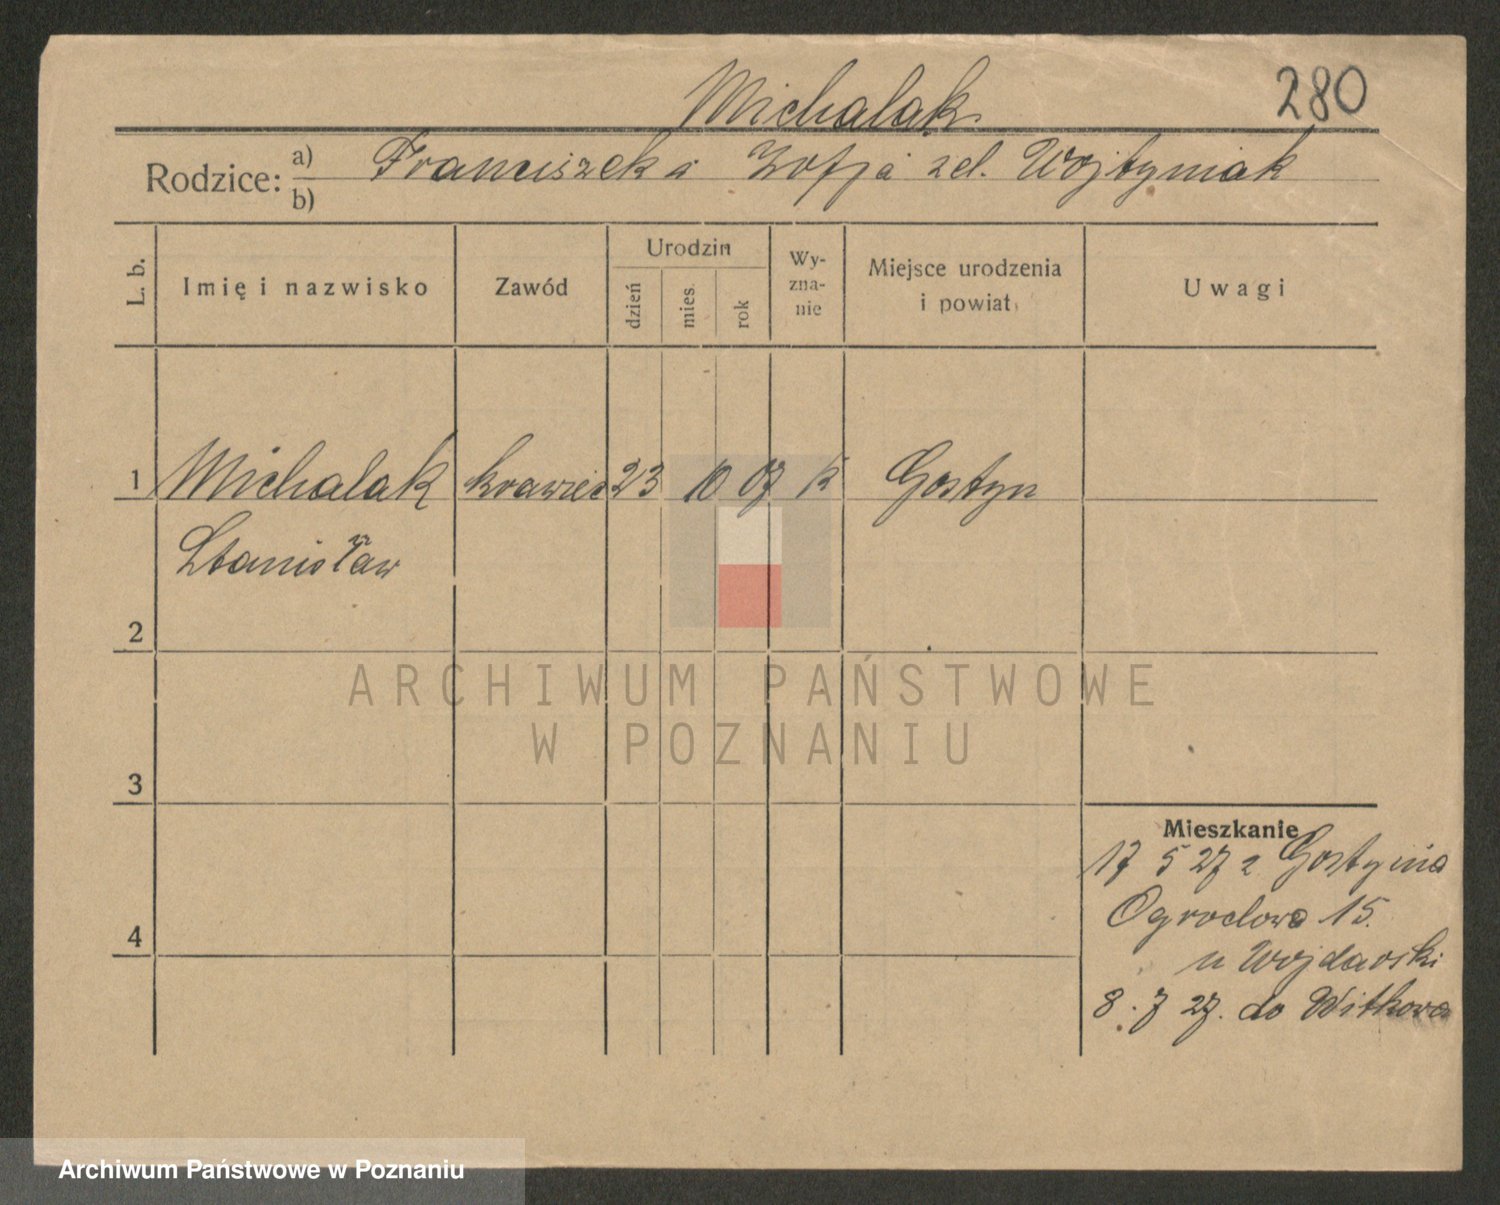 Michalak
280
Rodzice: a) Franciszek a Zofja zd. Wojtyniak
b)
L. b.
Imię i nazwisko
Zawód
Urodzin
dzień
mies.
rok
Wy-
zna-
nie
Miejsce urodzenia
i powiat
Uwagi
1 Michalak krawiec 23 10 07 k Gostyn
Stanisław
2
3
4
Mieszkanie
17 5 27 z Gostynia
Ogrodowa 15.
u Wojdarski
8. 7 27. do Witkowa
ARCHIWUM PAŃSTWOWE
W POZNANIU
Archiwum Państwowe w Poznaniu